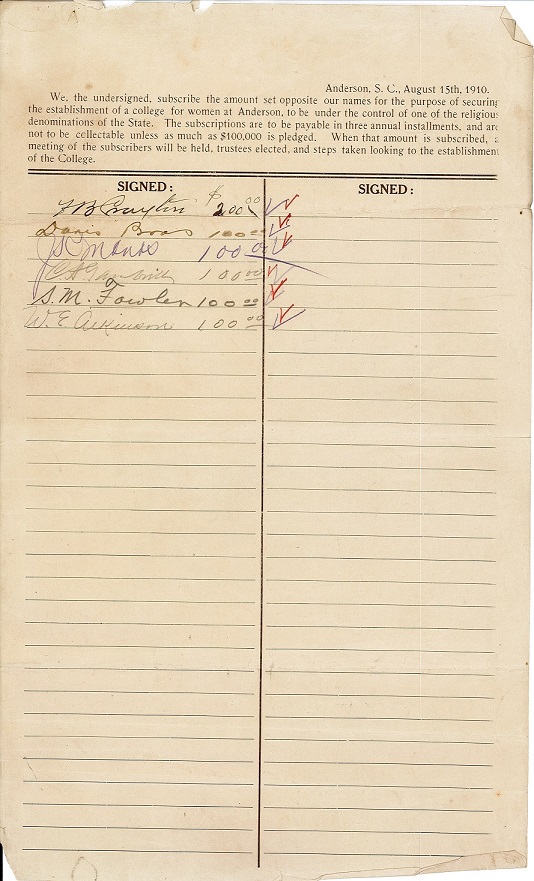 Anderson, S. C., August 15th, 1910.
We, the undersigned, subscribe the amount set opposite our names for the purpose of securing
the establishment of a college for women at Anderson, to be under the control of one of the religious
denominations of the State. The subscriptions are to be payable in three annual installments, and are
not to be collectable unless as much as $100,000 is pledged. When that amount is subscribed, a
meeting of the subscribers will be held, trustees elected, and steps taken looking to the establishment
of the College.
SIGNED: SIGNED:
B Crayton $200.00
Davis Bros 100.00
100.00
100.00
S. M. Fowler 100.00
W. E Atkinson 100.00